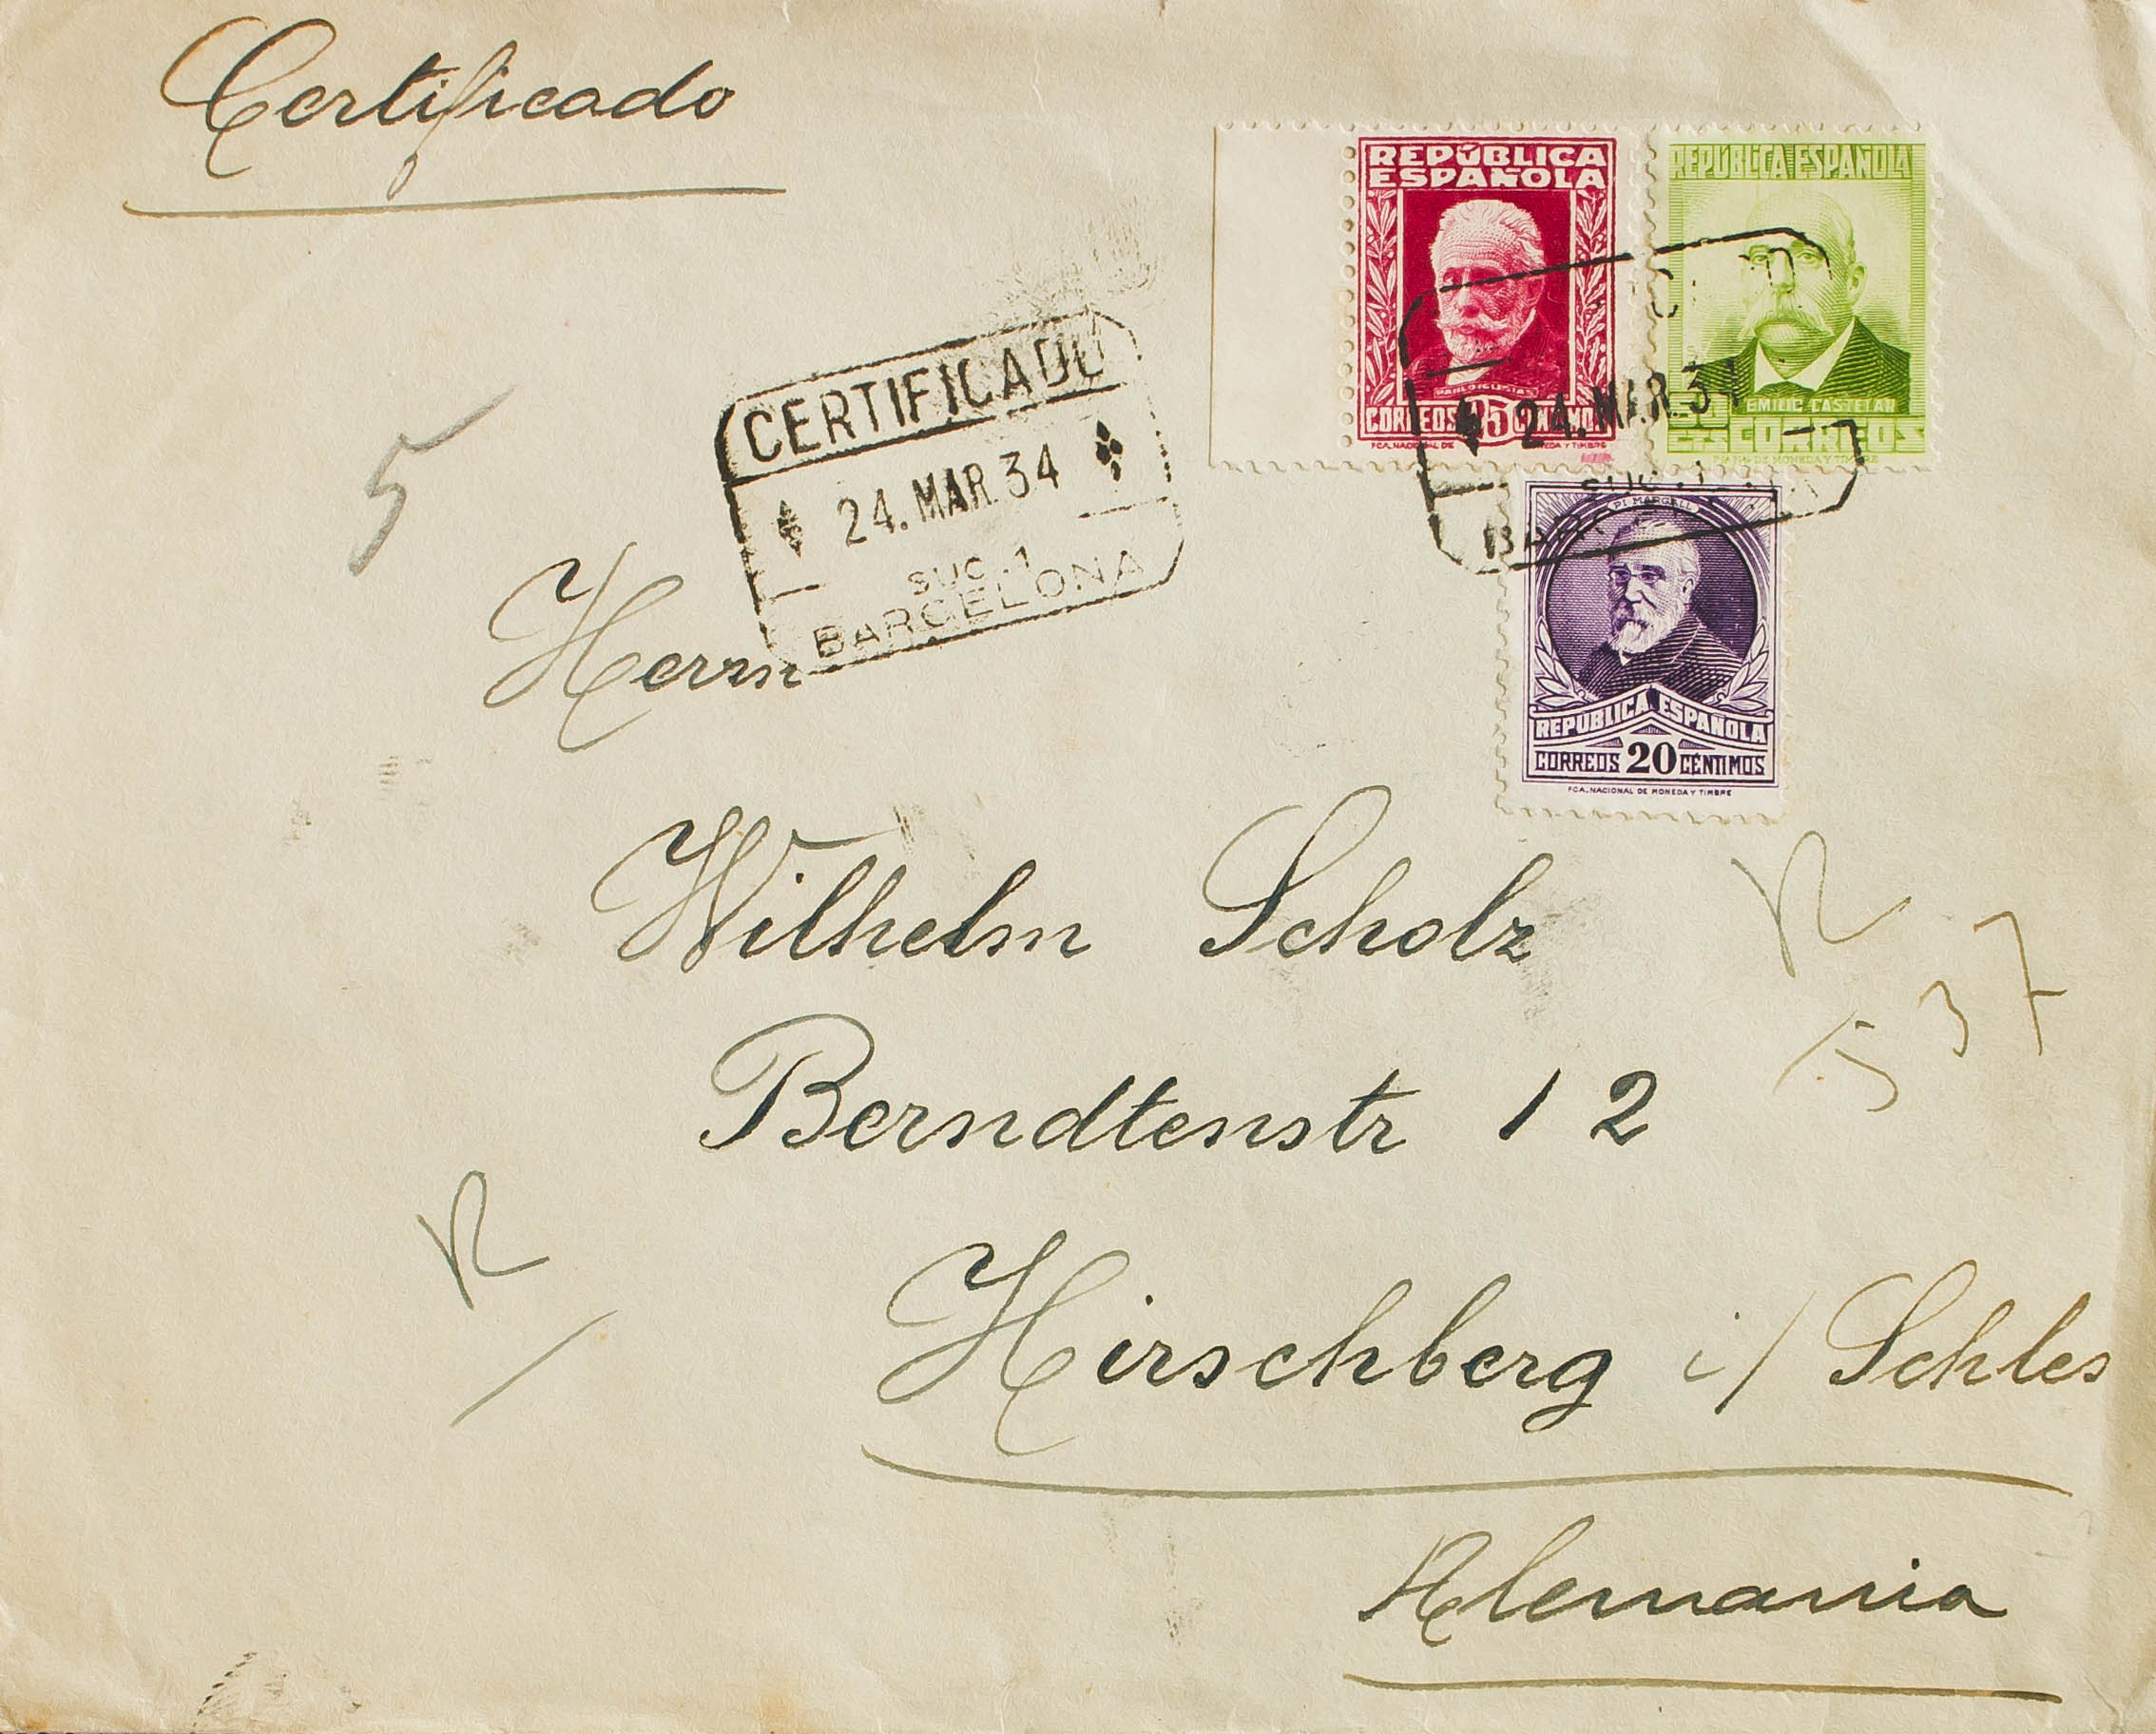 Certificado
REPÚBLICA
ESPAÑOLA
PABLO IGLESIAS
CORREOS 25 CENTIMOS
FCA. NACIONAL DE MONEDA Y TIMBRE
REPÚBLICA ESPAÑOLA
EMILIO CASTELAR
CTS CORREOS
24. MAR. 34
SUC. 1
CERTIFICADO
24. MAR. 34
SUC. 1
BARCELONA
PI MARGALL
REPÚBLICA ESPAÑOLA
CORREOS 20 CÉNTIMOS
FCA. NACIONAL DE MONEDA Y TIMBRE
5
Herrn
Wilhelm Scholz
R
537
Berndtenstr 12
R
Hirschberg i/ Schles
Alemania